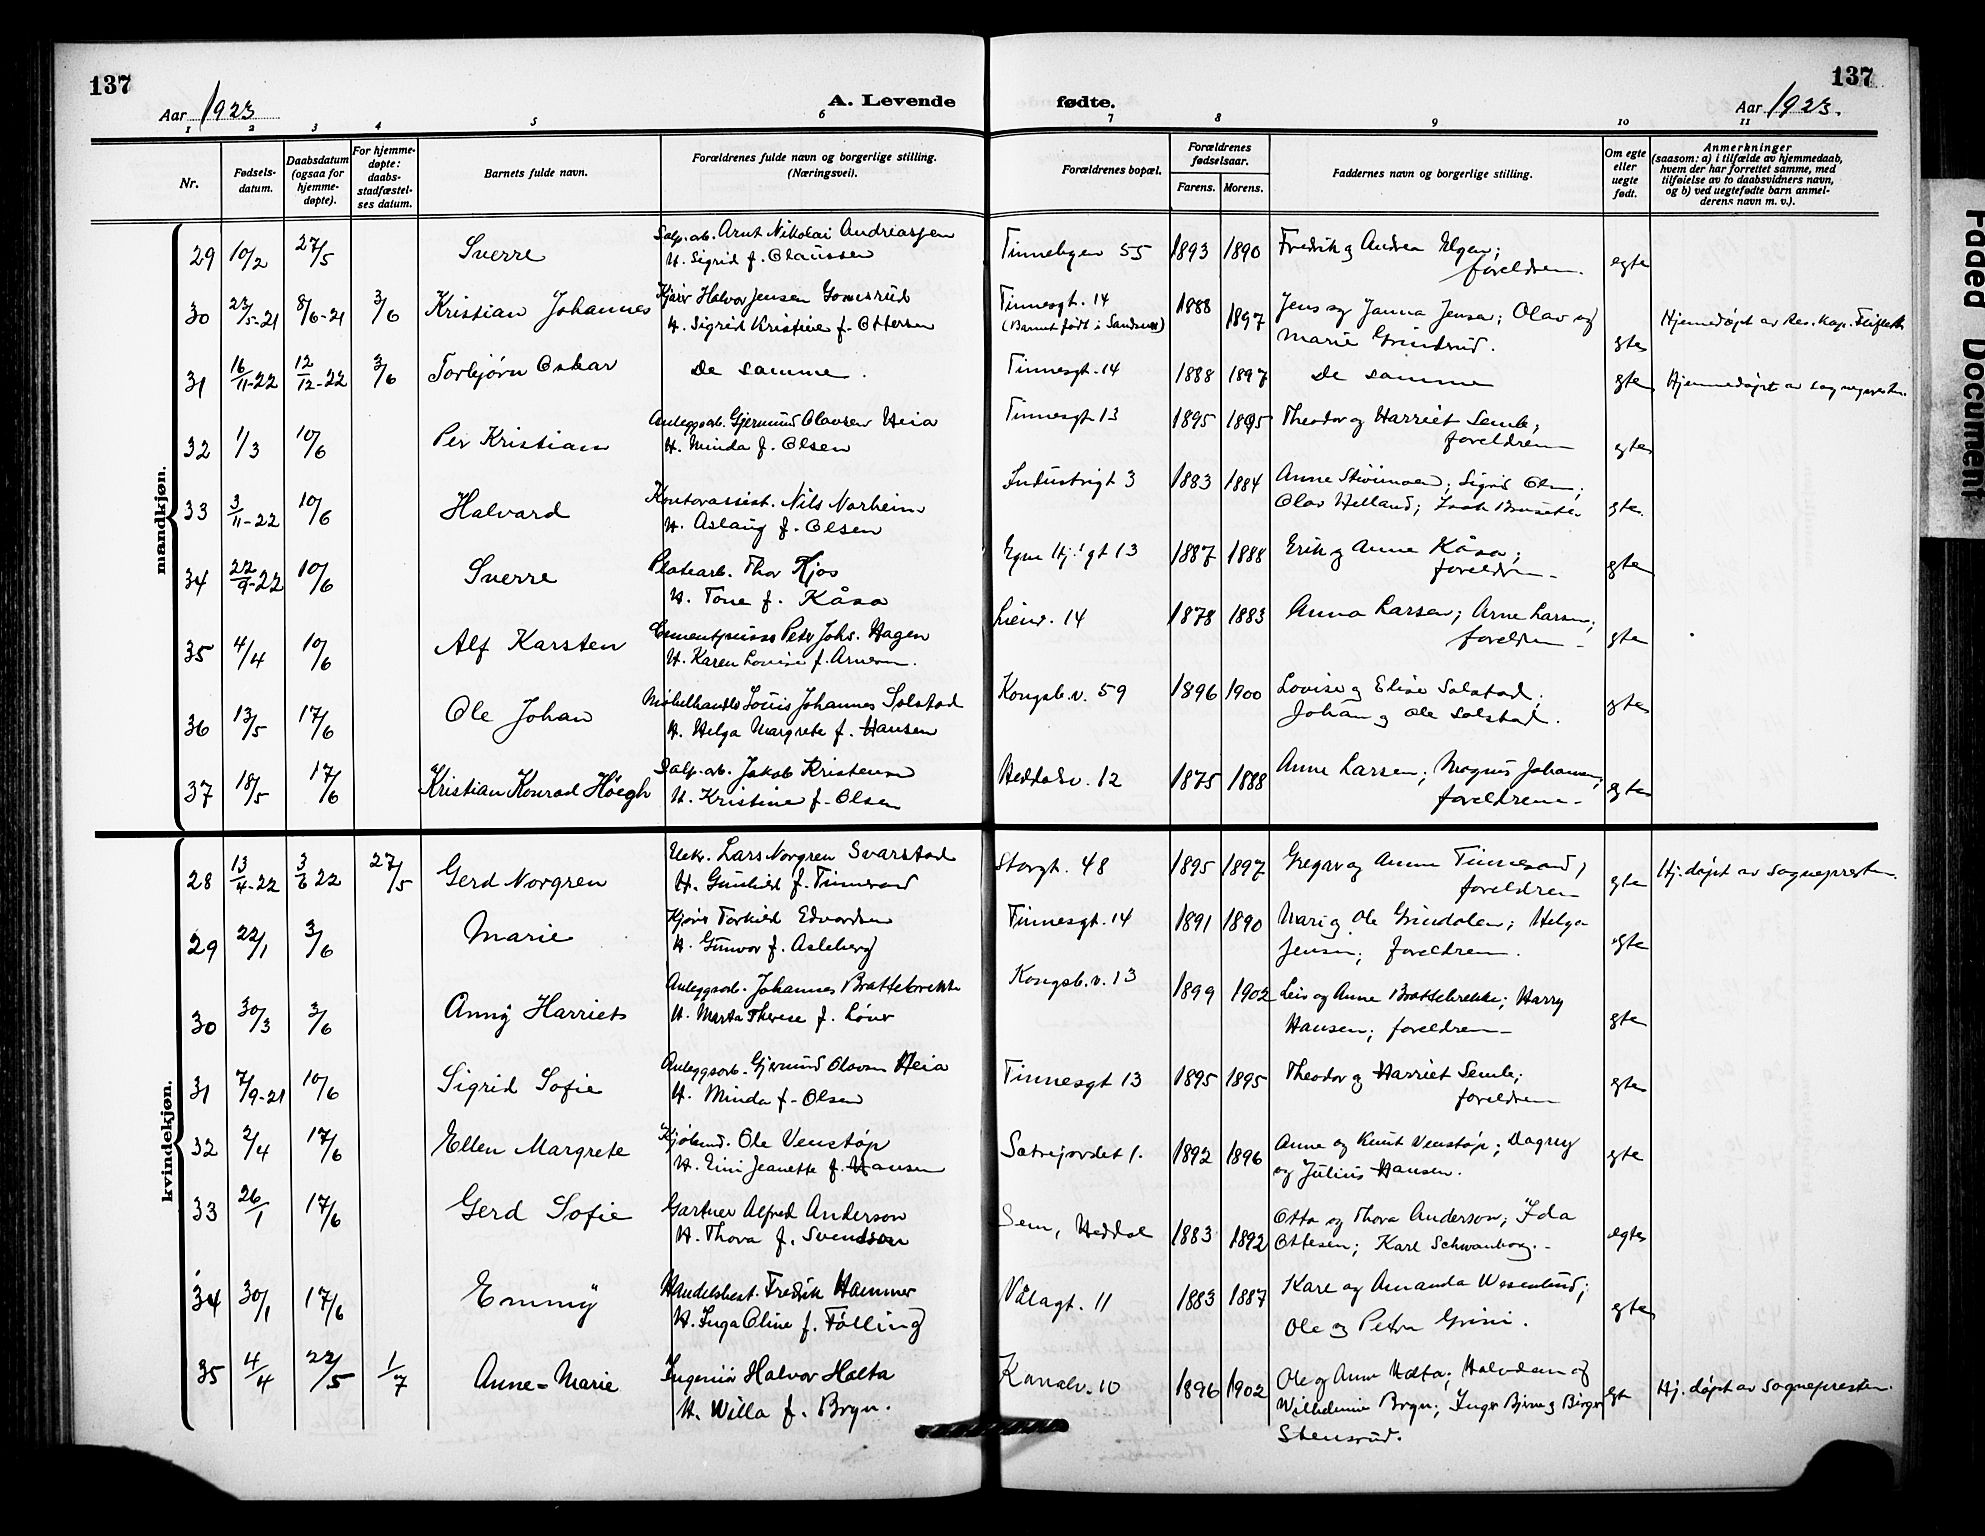 137
137
Aar 1923
A. Levende
fødte.
Aar 1923.
1 2 3 4 5 6 7 8 9 10 11
Nr.
Fødsels-
datum.
Daabsdatum
(ogsaa for
hjemme-
døpte).
For hjemme-
døpte:
daabs-
stadfæstel-
ses datum.
Barnets fulde navn.
Forældrenes fulde navn og borgerlige stilling.
(Næringsvei).
Forældrenes bopæl.
Forældrenes
fødselsaar.
Farens. Morens.
Faddernes navn og borgerlige stilling.
Om egte
eller
uegte
født.
Anmerkninger
(saasom: a) i tilfælde av hjemmedaab,
hvem der har forrettet samme, med
tilføielse av to daabsvidners navn,
og b) ved uegtefødte barn anmel-
derens navn m. v.).
mandkjøn.
29 10/2 27/5 Sverre Salp. arb. Arnt Nikolai Andreassen Tinnebyen 55 1893 1890 Fredrik og Andrea Elgen; egte
H. Sigrid f. Claussen foreldrene.
30 23/5-21 8/6-21 3/6 Kristian Johannes Halvor Jensen Gomsrud Tinnesgt. 14 1888 1897 Jens og Janna Jensen; Olav og egte Hjemmedøpt av Res. kap.
H. Sigrid Kristine f. Ottersen (Barnet født i Sandnes) Marie Grindrud.
31 16/11-22 12/12-22 3/6 Torbjørn Oskar De samme. Tinnesgt. 14 1888 1897 De samme egte Hjemmedøpt av sognepresten.
32 1/3 10/6 Per Kristian Anleggsarb. Gjermund Olavsen Heia Tinnesgt 13 1895 1895 Theodor og Harriet Semb; egte
H. Minda f. Olsen foreldrene
33 3/11-22 10/6 Halvard Kontorassist. Nils Norheim Industrigt 3 1883 1884 Anne; Sigrid Olsen; egte.
H. Aslaug f. Olsen Olav Helland;
34 22/9-22 10/6 Sverre Thor Kjos Egne Hj. gt 13 1887 1888 Erik og Anne Kåsa; egte
H. Tone f. Kåsa foreldrene
35 4/4 10/6 Alf Karsten Peter Johs. Hagen Lienv. 14 1878 1883 Anna Larsen; Arne Larsen; egte
H. Karen Lovise f. Arnesen. foreldrene
36 13/5 17/6 Ole Johan Møbelhandler Louis Johannes Solstad Kongsb.v. 59 1896 1900 Lovise og Elise Solstad; egte
H. Helga Margrete f. Hansen Johan og Ole Solstad.
37 18/5 17/6 Kristian Konrad Høegh Salp. arb. Jakob Kristensen Heddalsv. 12 1875 1888 Anne Larsen; Magnus Johansen; egte
H. Kristine f. Olsen foreldrene
kvindekjøn.
28 13/4-22 3/6 22 27/5 Gerd Norgren Lars Norgren Svarstad Storgt. 48 1895 1897 Gregar og Anne Tinnesand; egte Hj. døpt av sognepresten.
H. Gunhild f. Tinnesand foreldrene
29 22/1 3/6 Marie Torkild Edvardsen Tinnesgt. 14 1891 1890 Mari og Ole Grindalen; Helga egte
H. Gunvor f. Asleberg Jensen; foreldrene.
30 30/3 3/6 Anny Harriets Anleggsarb. Johannes Brattebrekke Kongsb.v. 13 1899 1902 Leis og Anne Brattebrekke; Harry egte
H. Marta Therese f. Lønn Hansen; foreldrene
31 7/9-21 10/6 Sigrid Sofie Anleggsarb. Gjermund Olavsen Heia Tinnesgt 13 1895 1895 Theodor og Harriet Semb; egte
H. Minda f. Olsen foreldrene
32 2/4 17/6 Ellen Margrete Kjøbmd. Ole Venstøp Sætrejordet 1. 1892 1896 Anne og Knut Venstøp; Dagny egte
H. Jeanette f. Hansen og Julius Hansen.
33 26/1 17/6 Gerd Sofie Gartner Alfred Anderson Sem, Heddal 1883 1892 Otto og Thora Anderson; Ida egte
H. Thora f. Svendsen Ottesen; Karl Schwanborg.
34 30/1 17/6 Emmy Handelsbest. Fredrik Hammer Vålagt. 11 1883 1887 Kare og Amanda Wesenlund; egte
H. Inga Oline f. Tølling Ole og Petra Grini.
35 4/4 22/5 1/7 Anne-Marie Ingeniør Halvor Holta Kanalv. 10 1896 1902 Ole og Anne Holta; Halvdan og egte Hj. døpt av sognepresten.
H. Willa f. Bryn. Wilhelmine Bryn; Inger Bjerne og Birger
Stensrud.
Faded Document